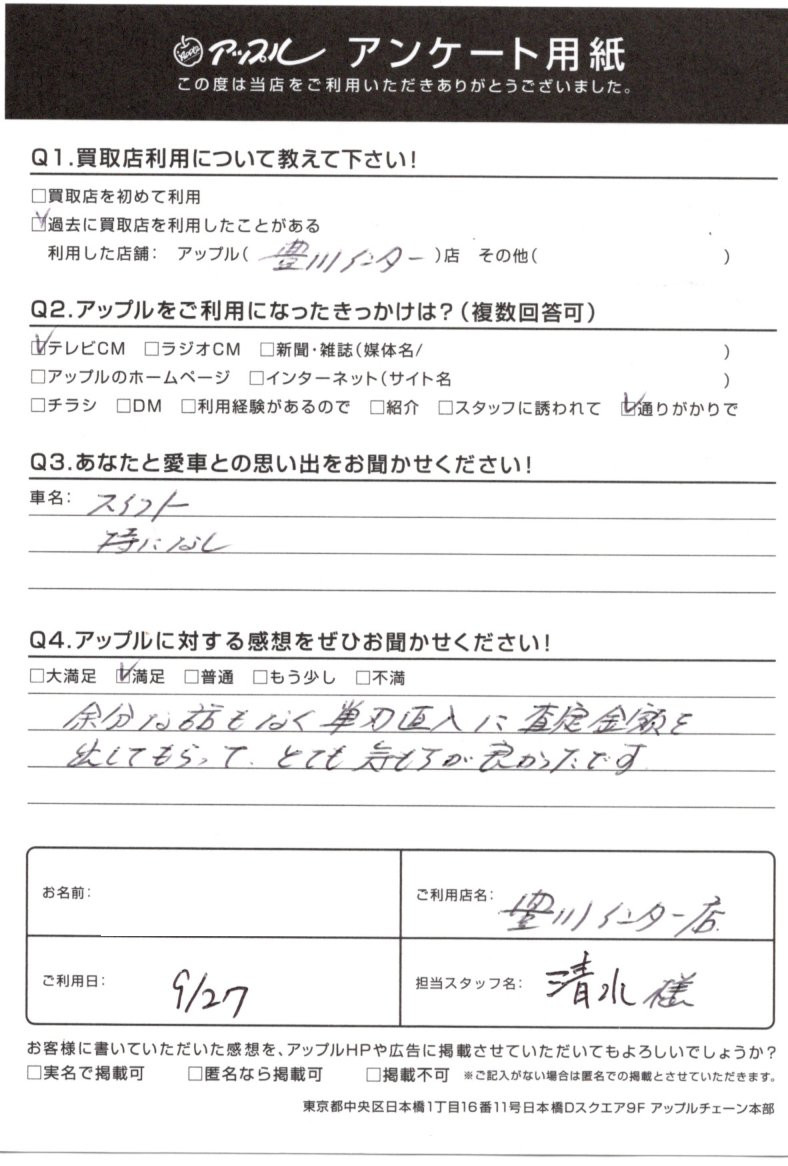 アップル アンケート用紙
この度は当店をご利用いただきありがとうございました。
Q1.買取店利用について教えて下さい!
□買取店を初めて利用
☑過去に買取店を利用したことがある
利用した店舗: アップル( 豊川インター )店 その他( )
Q2.アップルをご利用になったきっかけは?(複数回答可)
☑テレビCM □ラジオCM □新聞・雑誌(媒体名/ )
□アップルのホームページ □インターネット(サイト名 )
□チラシ □DM □利用経験があるので □紹介 □スタッフに誘われて ☑通りがかりで
Q3.あなたと愛車との思い出をお聞かせください!
車名: スイフト
特になし
Q4.アップルに対する感想をぜひお聞かせください!
□大満足 ☑満足 □普通 □もう少し □不満
余分な話もなく単刃直入に査定金額を
出してもらって、とても気もちが良かったです
お名前:
ご利用店名: 豊川インター店
ご利用日: 9/27
担当スタッフ名: 清水様
お客様に書いていただいた感想を、アップルHPや広告に掲載させていただいてもよろしいでしょうか?
□実名で掲載可 □匿名なら掲載可 □掲載不可 ※ご記入がない場合は匿名での掲載とさせていただきます。
東京都中央区日本橋1丁目16番11号日本橋Dスクエア9F アップルチェーン本部